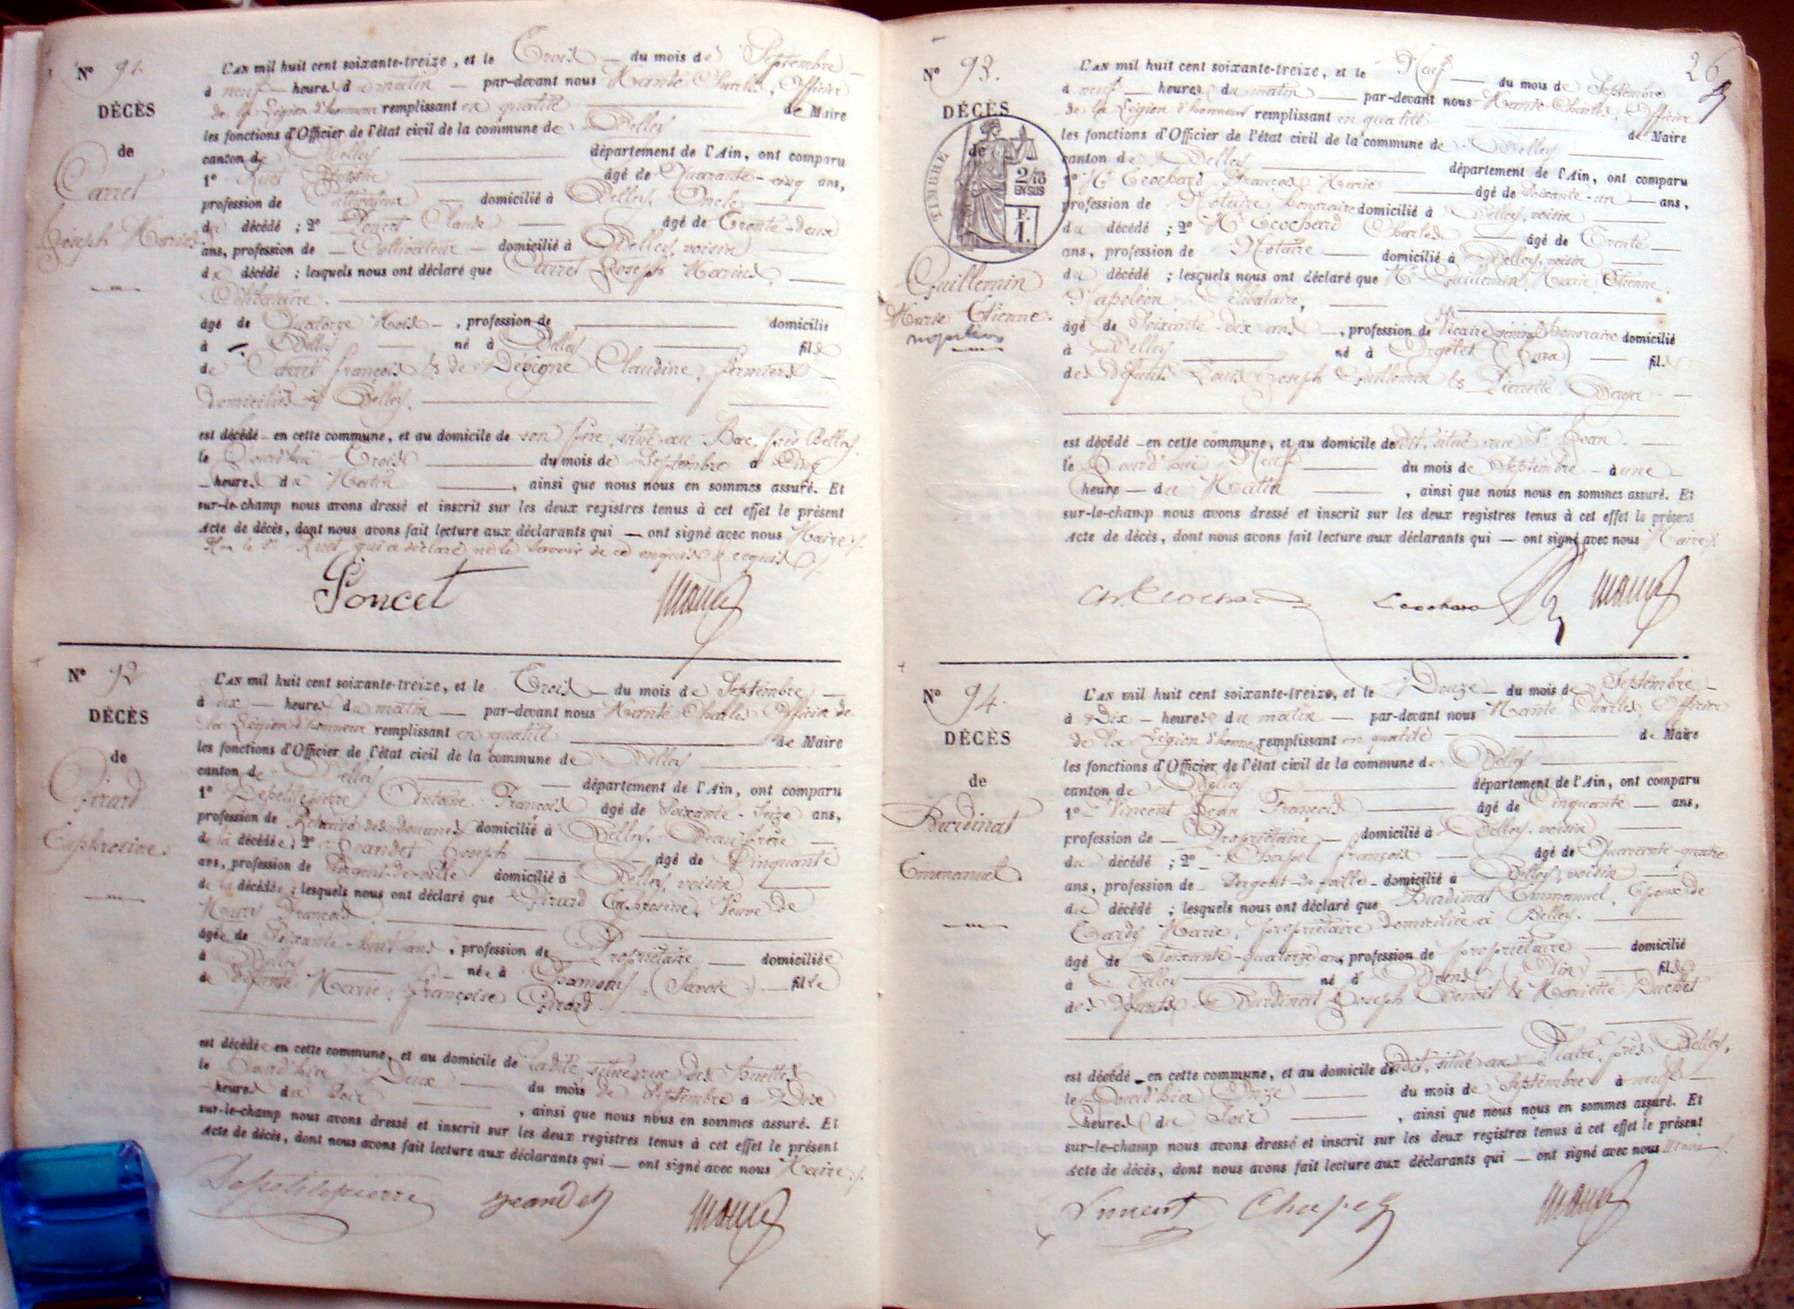 N° 91.
DÉCÈS
de
Carret
Joseph Marius
L'AN mil huit cent soixante-treize, et le Trois du mois de Septembre
à neuf heures du matin par-devant nous Charles, Officier
de la Légion d'honneur remplissant en qualité de Maire
les fonctions d'Officier de l'état civil de la commune de Belley
canton de Belley département de l'Ain, ont comparu
1° âgé de Quarante-cinq ans,
profession de Cultivateur domicilié à Belley, Oncle
du décédé ; 2° Poncet Claude âgé de Trente-deux
ans, profession de Cultivateur domicilié à Belley, voisin
du décédé ; lesquels nous ont déclaré que Carret Joseph Marius,
Célibataire.
âgé de Quatorze Mois, profession de domicilié
à Belley né à Belley fils
de Carret François & de Claudine, fermiers
domiciliés à Belley.
est décédé en cette commune, et au domicile de son père, situé au Bac, près Belley.
le Jourd'hui Trois du mois de Septembre à
heures du Matin, ainsi que nous nous en sommes assuré. Et
sur-le-champ nous avons dressé et inscrit sur les deux registres tenus à cet effet le présent
Acte de décès, dont nous avons fait lecture aux déclarants qui ont signé avec nous Maire
qui a déclaré ne le savoir de ce enquis & requis
Poncet
N° 92
DÉCÈS
de
Girard
Euphrosine.
L'AN mil huit cent soixante-treize, et le Trois du mois de Septembre
à dix heures du matin par-devant nous Charles Officier de
la Légion d'honneur remplissant en qualité de Maire
les fonctions d'Officier de l'état civil de la commune de Belley
canton de Belley département de l'Ain, ont comparu
1° Depetitpierre Antoine François âgé de Soixante-Seize ans,
profession de Retraité des douanes domicilié à Belley, Beau frère
de la décédée ; 2° Jeandet Joseph âgé de Cinquante
ans, profession de Sergent-de-ville domicilié à Belley, voisin
de la décédée ; lesquels nous ont déclaré que Girard Euphrosine, Veuve de
François
âgée de Soixante-huit ans, profession de Propriétaire domiciliée
à Belley née à (Savoie) fille
de défunte Marie Françoise Girard.
est décédée en cette commune, et au domicile de ladite, situé rue des
le Jourd'hier Deux du mois de Septembre à Dix
heures du Soir, ainsi que nous nous en sommes assuré. Et
sur-le-champ nous avons dressé et inscrit sur les deux registres tenus à cet effet le présent
Acte de décès, dont nous avons fait lecture aux déclarants qui ont signé avec nous Maire
Depetitpierre Jeandet
26
N° 93.
DÉCÈS
de
TIMBRE
2/10
EN SUS
F.
1.
Guillemin
Marie Etienne.
napoléon
L'AN mil huit cent soixante-treize, et le Neuf du mois de Septembre
à neuf heures du matin par-devant nous Charles, Officier
de la Légion d'honneur remplissant en qualité de Maire
les fonctions d'Officier de l'état civil de la commune de Belley
canton de Belley département de l'Ain, ont comparu
1° Mr Cochard François Marie âgé de Soixante-un ans,
profession de Notaire honoraire domicilié à Belley, voisin
du décédé ; 2° Mr Cochard Charles âgé de Trente
ans, profession de Notaire domicilié à Belley, voisin
du décédé ; lesquels nous ont déclaré que Mr Guillemin, Marie, Etienne,
Napoléon Célibataire,
âgé de Soixante-dix ans, profession de Vicaire général honoraire domicilié
à Belley né à Orgelet (Jura) fils
de défunts Louis Joseph Guillemin & Pierrette
est décédé en cette commune, et au domicile dudit, situé rue St Jean.
le Jourd'hui Neuf du mois de Septembre à une
heure du Matin, ainsi que nous nous en sommes assuré. Et
sur-le-champ nous avons dressé et inscrit sur les deux registres tenus à cet effet le présent
Acte de décès, dont nous avons fait lecture aux déclarants qui ont signé avec nous Maire
N° 94.
DÉCÈS
de
Burdinat
Emmanuel.
L'AN mil huit cent soixante-treize, et le Douze du mois de Septembre
à Dix heures du matin par-devant nous Charles, Officier
de la Légion d'honneur remplissant en qualité de Maire
les fonctions d'Officier de l'état civil de la commune de Belley
canton de Belley département de l'Ain, ont comparu
1° Vincent Jean François âgé de Cinquante ans,
profession de Propriétaire domicilié à Belley, voisin
du décédé ; 2° Chapel François âgé de Quarante-quatre
ans, profession de Sergent-de-ville domicilié à Belley, voisin
du décédé ; lesquels nous ont déclaré que Burdinat Emmanuel, Epoux de
Tardy Marie, propriétaire domiciliée à Belley.
âgé de Soixante-quatorze ans, profession de propriétaire domicilié
à Belley né à (Ain) fils
de défunts Burdinat Joseph Benoit & Mariette
est décédé en cette commune, et au domicile dudit, situé au près Belley.
le Jourd'hier Onze du mois de Septembre à neuf
heures du Soir, ainsi que nous nous en sommes assuré. Et
sur-le-champ nous avons dressé et inscrit sur les deux registres tenus à cet effet le présent
Acte de décès, dont nous avons fait lecture aux déclarants qui ont signé avec nous Maire
Vincent Chapel